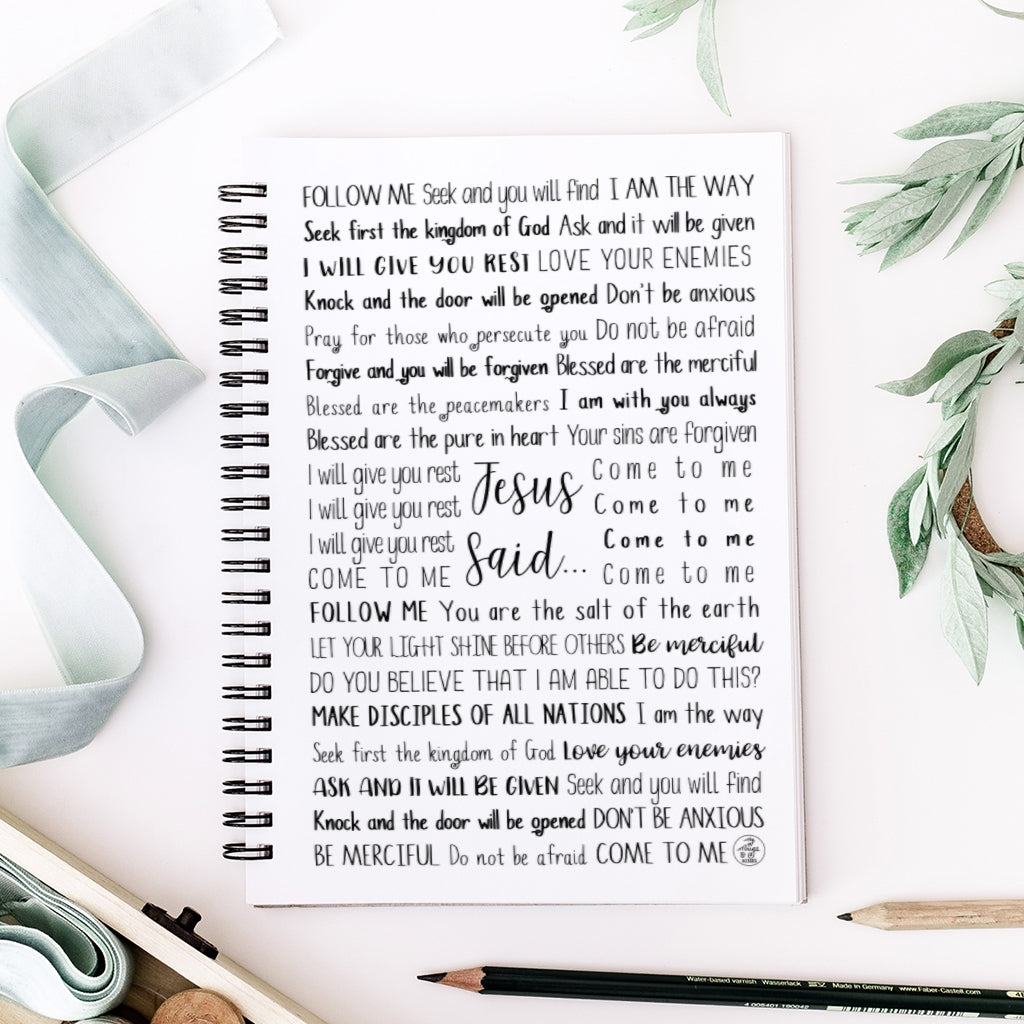 FOLLOW ME Seek and you will find I AM THE WAY
Seek first the kingdom of God Ask and it will be given
I WILL GIVE YOU REST LOVE YOUR ENEMIES
Knock and the door will be opened Don't be anxious
Pray for those who persecute you Do not be afraid
Forgive and you will be forgiven Blessed are the merciful
Blessed are the peacemakers I am with you always
Blessed are the pure in heart Your sins are forgiven
I will give you rest
I will give you rest
I will give you rest
COME TO ME
Jesus
Said...
Come to me
Come to me
Come to me
Come to me
FOLLOW ME You are the salt of the earth
LET YOUR LIGHT SHINE BEFORE OTHERS Be merciful
DO YOU BELIEVE THAT I AM ABLE TO DO THIS?
MAKE DISCIPLES OF ALL NATIONS I am the way
Seek first the kingdom of God Love your enemies
ASK AND IT WILL BE GIVEN Seek and you will find
Knock and the door will be opened DON'T BE ANXIOUS
BE MERCIFUL Do not be afraid COME TO ME
Water-based varnish Wasserlack Made in Germany www.Faber-Castell.com
4 005401 190042